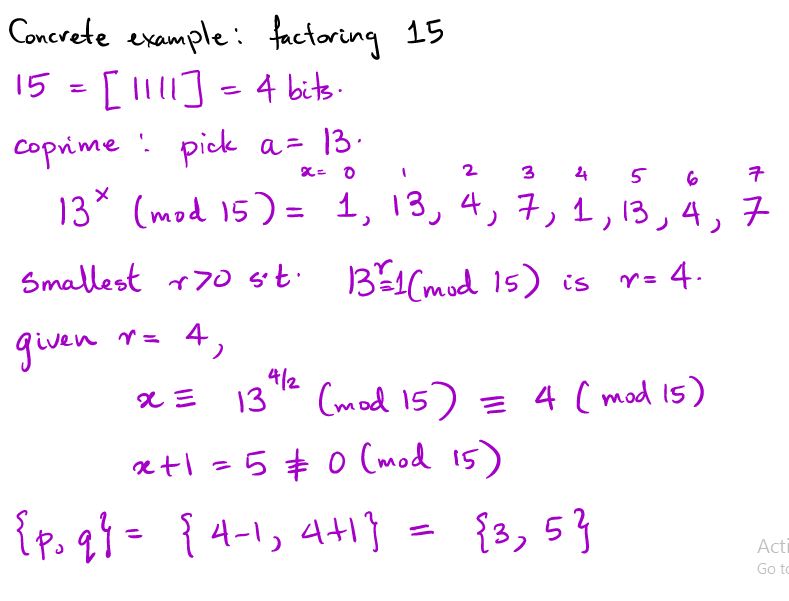 Concrete example: factoring 15
15 = [1111] = 4 bits.
coprime : pick a = 13.
x= 0 1 2 3 4 5 6 7
13^x (mod 15) = 1, 13, 4, 7, 1, 13, 4, 7
smallest r>0 s.t. 13^r=1(mod 15) is r=4.
given r= 4,
x ≡ 13^4/2 (mod 15) ≡ 4 (mod 15)
x+1 = 5 ≢ 0 (mod 15)
{p, q} = {4-1, 4+1} = {3, 5}
Acti
Go to